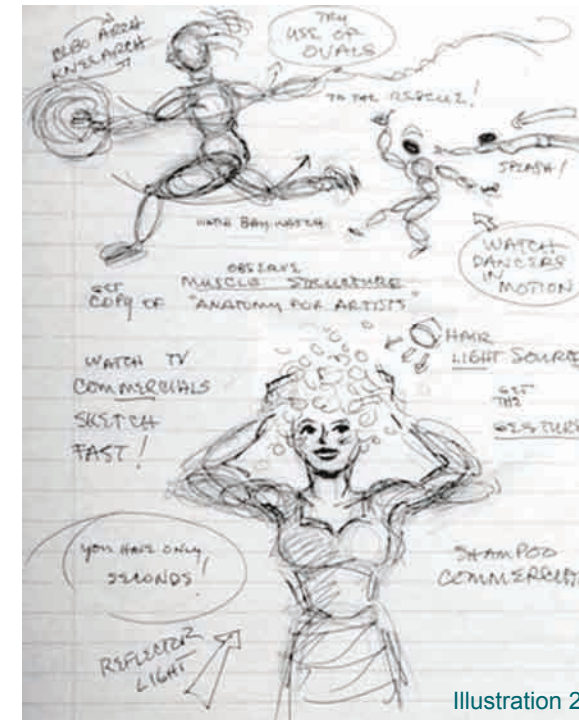 ARCH
KNEE ARCH
TRY
USE OF
OVALS
TO THE RESCUE!
SPLASH!
WATCH BAY WATCH
WATCH
DANCERS
IN
MOTION
OBSERVE
MUSCLE STRUCTURE
GET
COPY OF "ANATOMY FOR ARTISTS"
HAIR
LIGHT SOURCE
WATCH TV
COMMERCIALS
SKETCH
FAST!
GET
THE
GESTURE
YOU HAVE ONLY
SECONDS!
SHAMPOO
COMMERCIAL
REFLECTOR
LIGHT
Illustration 2